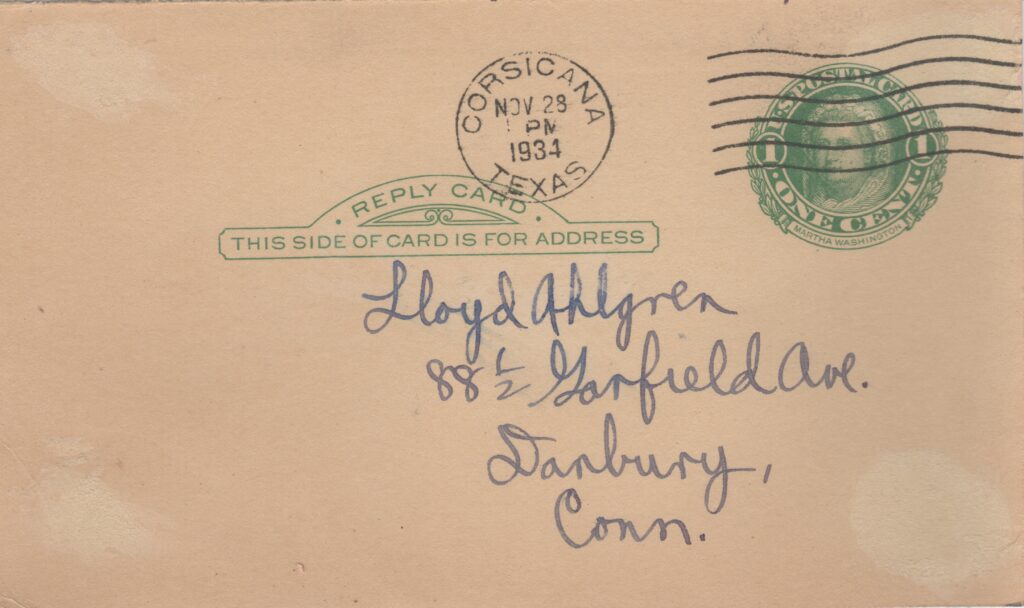 CORSICANA
NOV 28
1 PM
1934
TEXAS
U.S. POSTAL CARD
1 1
ONE CENT
MARTHA WASHINGTON
· REPLY CARD ·
THIS SIDE OF CARD IS FOR ADDRESS
Lloyd Ahlgren
88 1/2 Garfield Ave.
Danbury,
Conn.